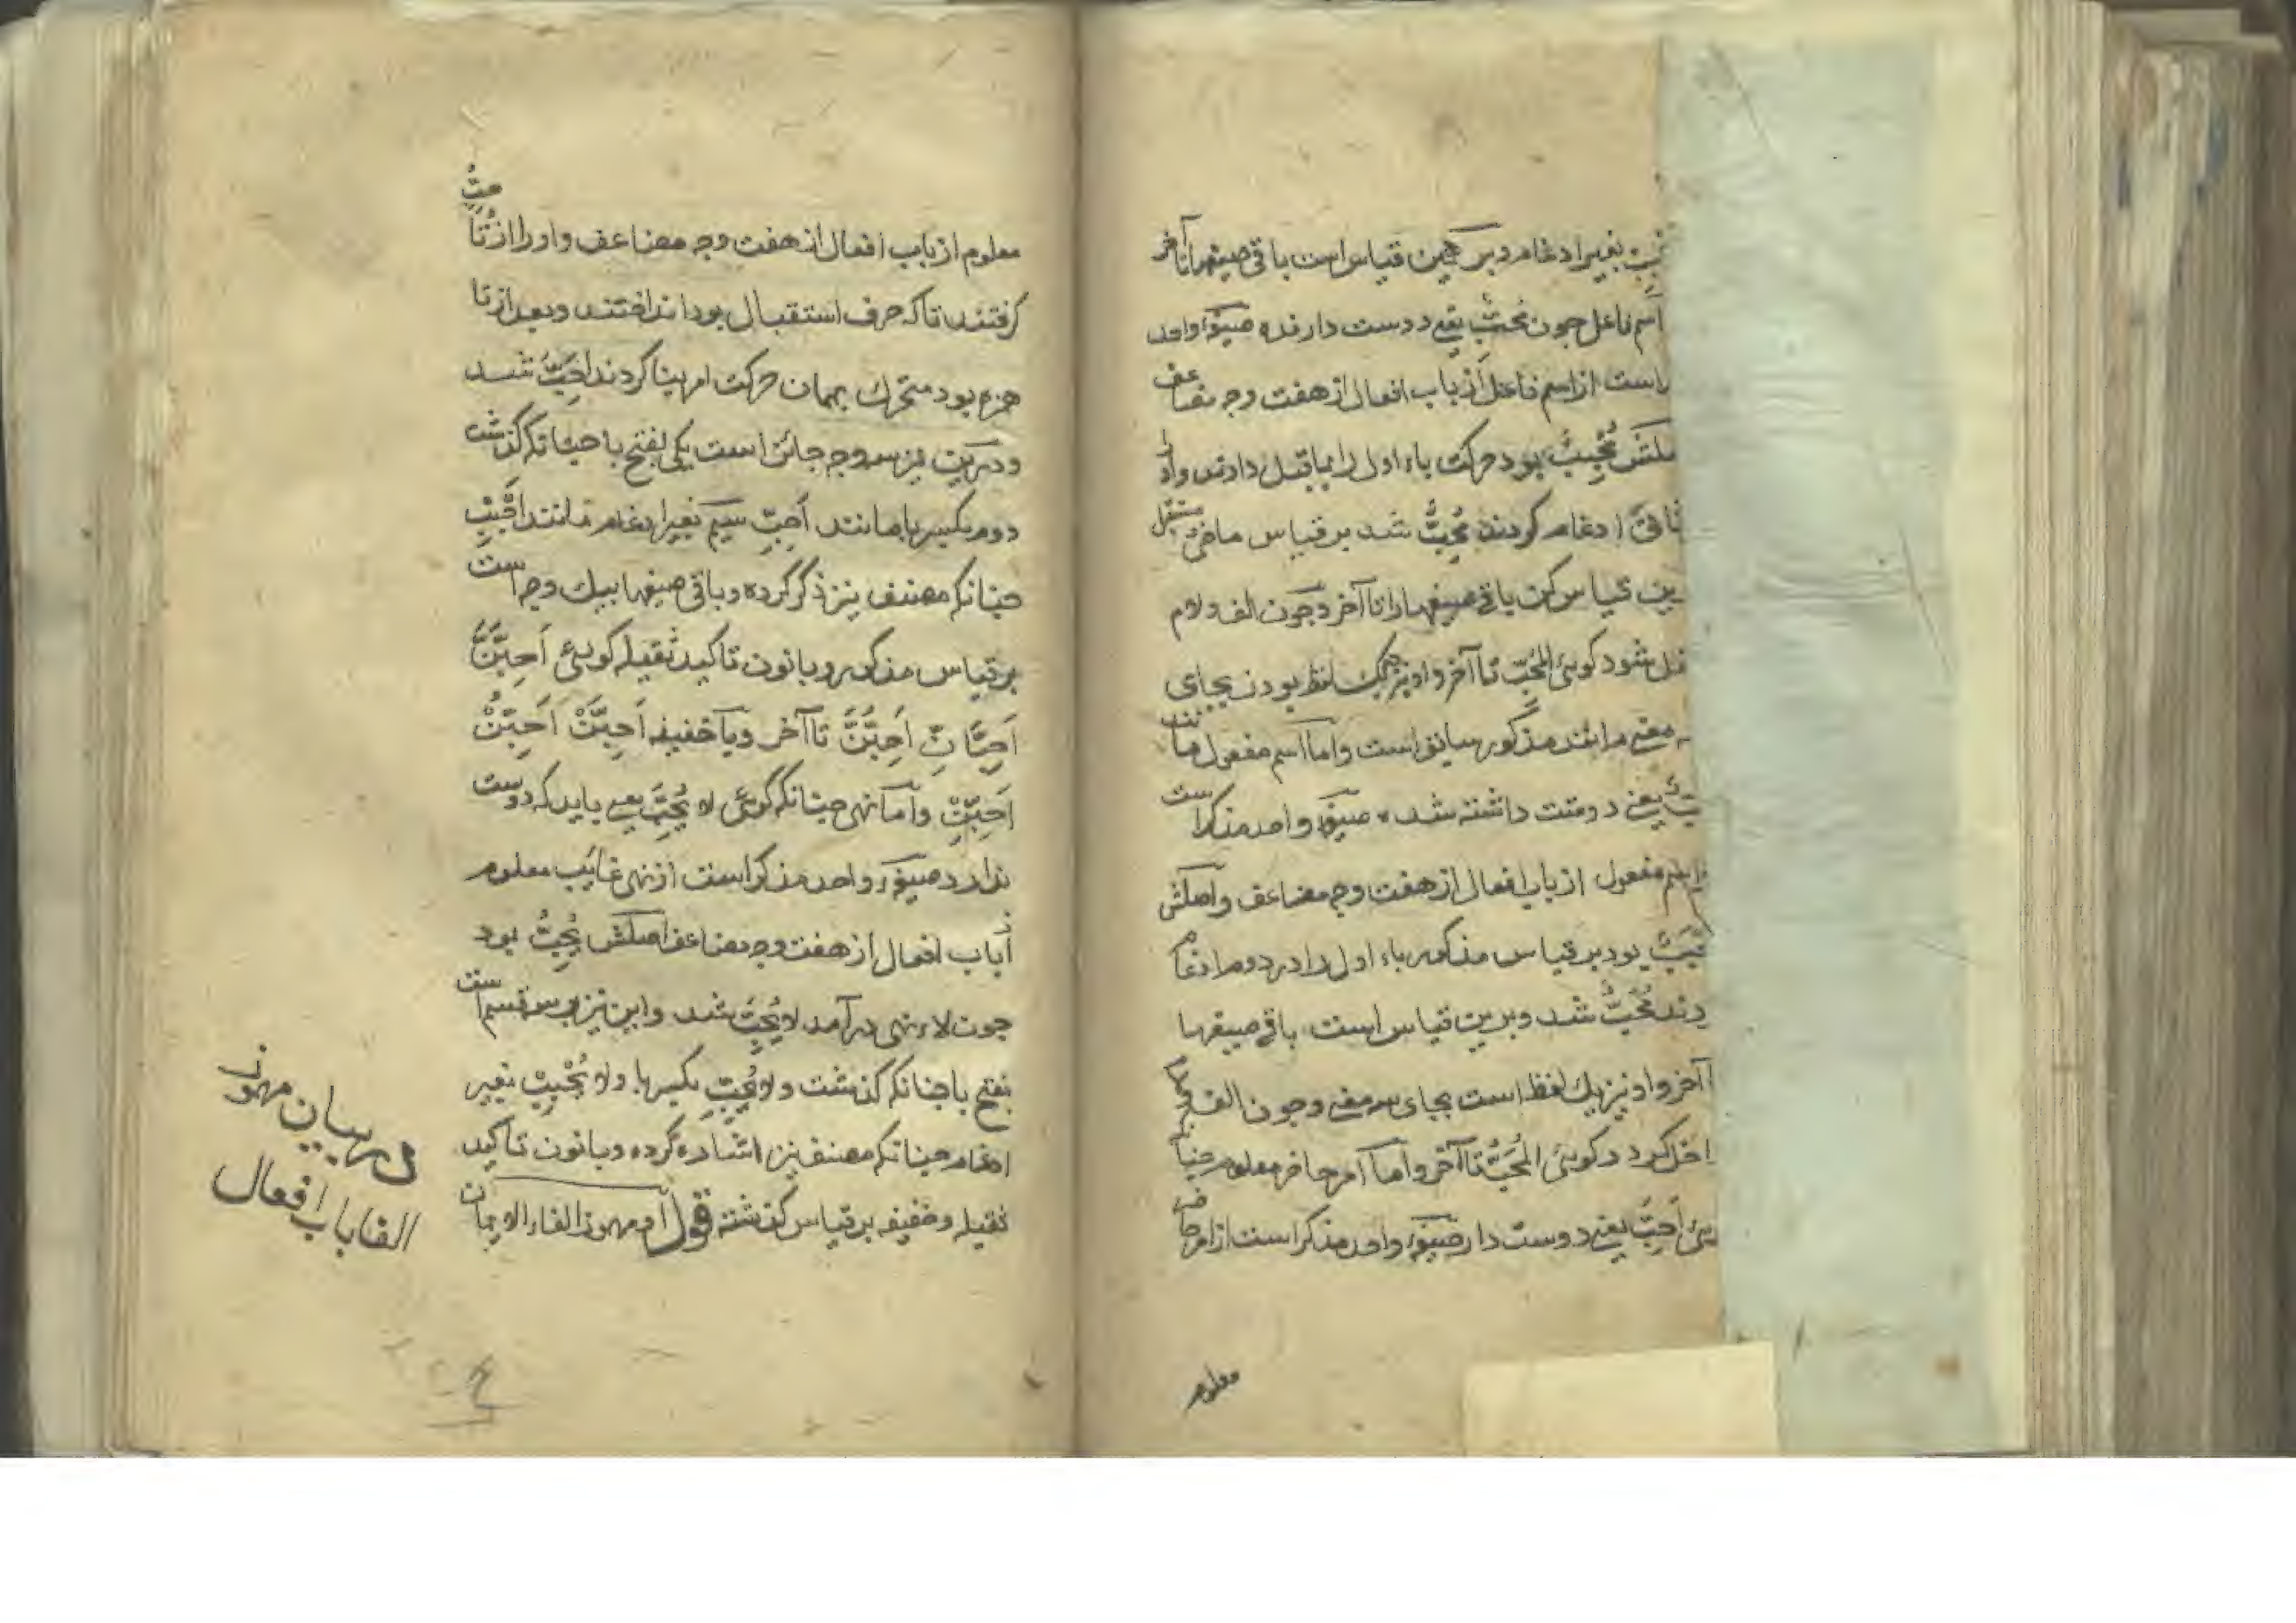 بغیر ادغام و بر همین قیاس است باقی صیغها تا آخر
اسم فاعل چون مُحِبٌّ یعنی دوست دارنده صیغهٔ واحد
است از اسم فاعل از باب افعال از هفت وجه مضاعف
مُحْبِبٌ بود حرکت باء اول را بماقبل دادند و اول را
ثانی ادغام کردند مُحِبٌّ شد بر قیاس ماضی مستقبل
قیاس کن باقی صیغها را تا آخر و چون الف و لام
شود گوئی المُحِبّ تا آخر و او نیز یک لفظ بودن بجای
معنی مانند مذکور سابق است و اما اسم مفعول مانند
یعنی دوست داشته شده صیغهٔ واحد مذکر است
اسم مفعول از باب افعال از هفت وجه مضاعف و اصلش
بود بر قیاس مذکور باء اول را در دوم ادغام
مُحَبٌّ شد و برین قیاس است باقی صیغها
آخر و او نیز یک لفظ است بجای سه معنی و چون الف و لام
گوئی المُحَبُّ تا آخر و اما امر حاضر معلوم چنانکه
أَحِبَّ یعنی دوست دار صیغهٔ واحد مذکر است از امر حاضر
معلوم
معلوم از باب افعال از هفت وجه مضاعف و او را از تُحِبُّ
گرفتند تا که حرف استقبال بود انداختند و بعد از تا
همزه بود متحرک بهمان حرکت امر بنا کردند اَحِبَّ شد
و درین نیز سه وجه جائز است یکی بفتح با چنانکه گذشت
دوم بکسر با مانند اَحِبِّ سیم بغیر ادغام مانند اَحْبِبْ
چنانکه مصنف نیز ذکر کرده و باقی صیغها بیک وجه است
بر قیاس مذکور و با نون تاکید ثقیله گوئی اَحِبَّنَّ
اَحِبَّانِّ اَحِبُّنَّ تا آخر و با خفیفه اَحِبَّنْ اَحِبُّنْ
اَحِبِّنْ و اما نهی چنانکه گوئی لا یُحِبَّ یعنی باید که دوست
ندارد صیغهٔ واحد مذکر است از نهی غایب معلوم
از باب افعال از هفت وجه مضاعف اصلش یُحِبُّ بود
چون لاء نهی درآمد لا یُحِبَّ شد و این نیز بر سه قسم است
بفتح با چنانکه گذشت و لا یُحِبِّ بکسر با و لا یُحْبِبْ بغیر
ادغام چنانکه مصنف نیز اشاره کرده و با نون تاکید
ثقیله و خفیفه بر قیاس گذشته قوله مهموز الفاء الایمان
در بیان مهموز
الفا باب افعال